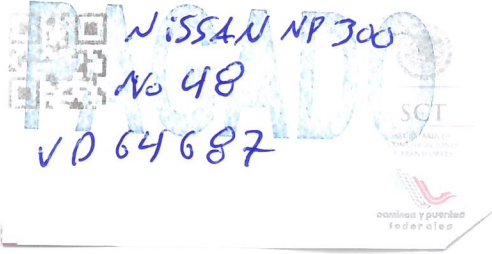 NiSSAN NP 300
No 48
VD 64687
PAGADO
SCT
caminos y puentes
federales